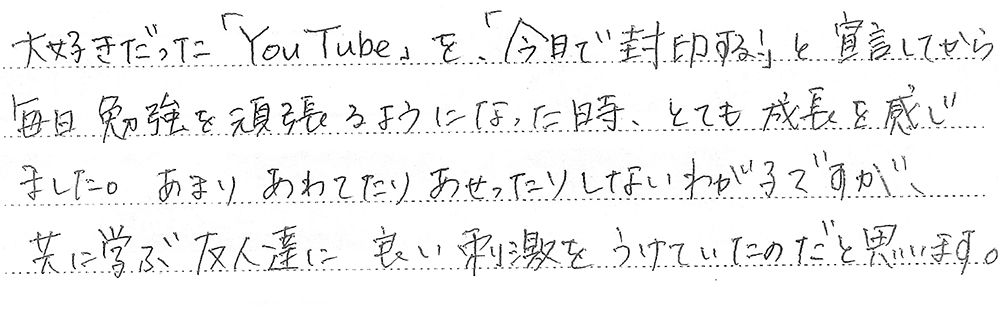 大好きだった「YouTube」を、「今日で封印する!」と宣言してから
毎日勉強を頑張るようになった時、とても成長を感じ
ました。あまりあわてたりあせったりしないわが子ですが、
共に学ぶ友人達に良い刺激をうけていたのだと思います。